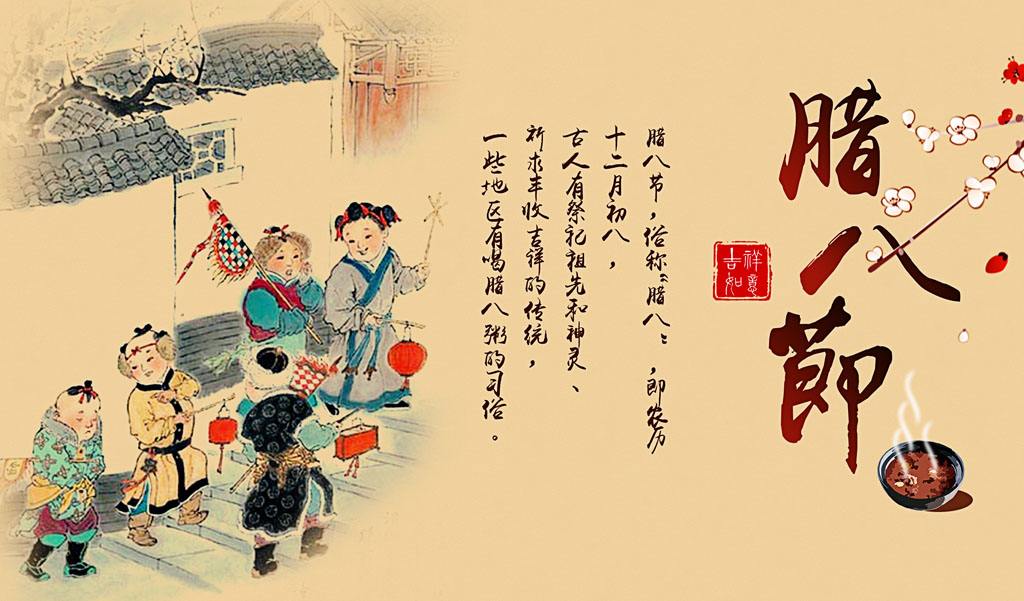 腊八節
吉祥
如意
腊八节，俗称“腊八”，即农历
十二月初八，
古人有祭祀祖先和神灵、
祈求丰收吉祥的传统，
一些地区有喝腊八粥的司俗。